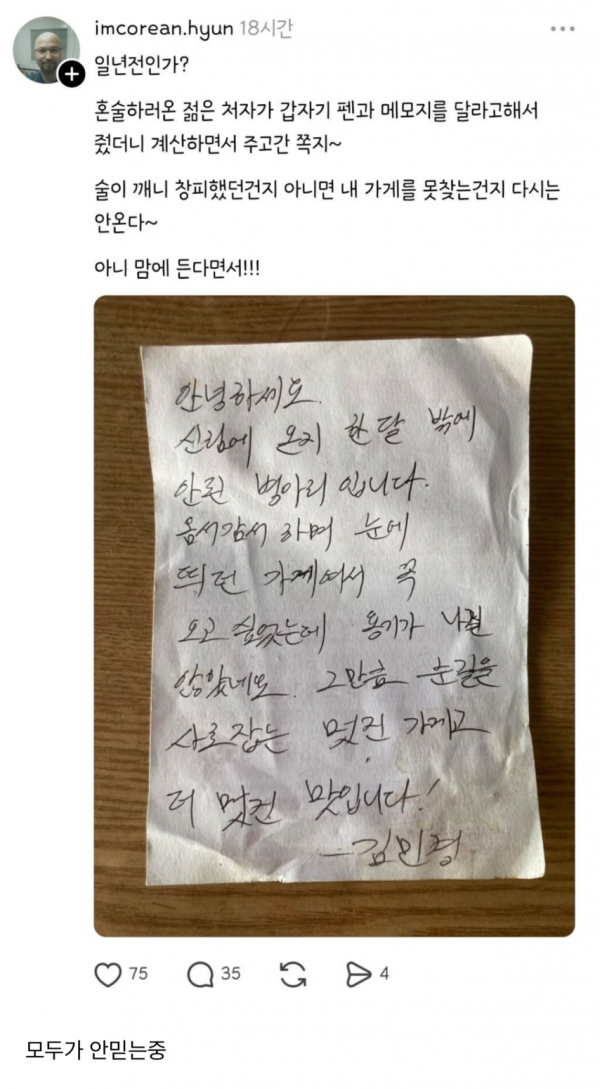 imcorean.hyun 18시간
일년전인가?
혼술하러온 젊은 처자가 갑자기 펜과 메모지를 달라고해서
줬더니 계산하면서 주고간 쪽지~
술이 깨니 창피했던건지 아니면 내 가게를 못찾는건지 다시는
안온다~
아니 맘에 든다면서!!!
안녕하세요.
신림에 온지 한 달 밖에
안된 병아리 입니다.
옴서감서 하며 눈에
띄던 가게여서 꼭
오고 싶었는데 용기가 나질
않았네요. 그만큼 눈길을
사로잡는 멋진 가게고
더 멋진 맛입니다!
-김민정
75 35 4
모두가 안믿는중